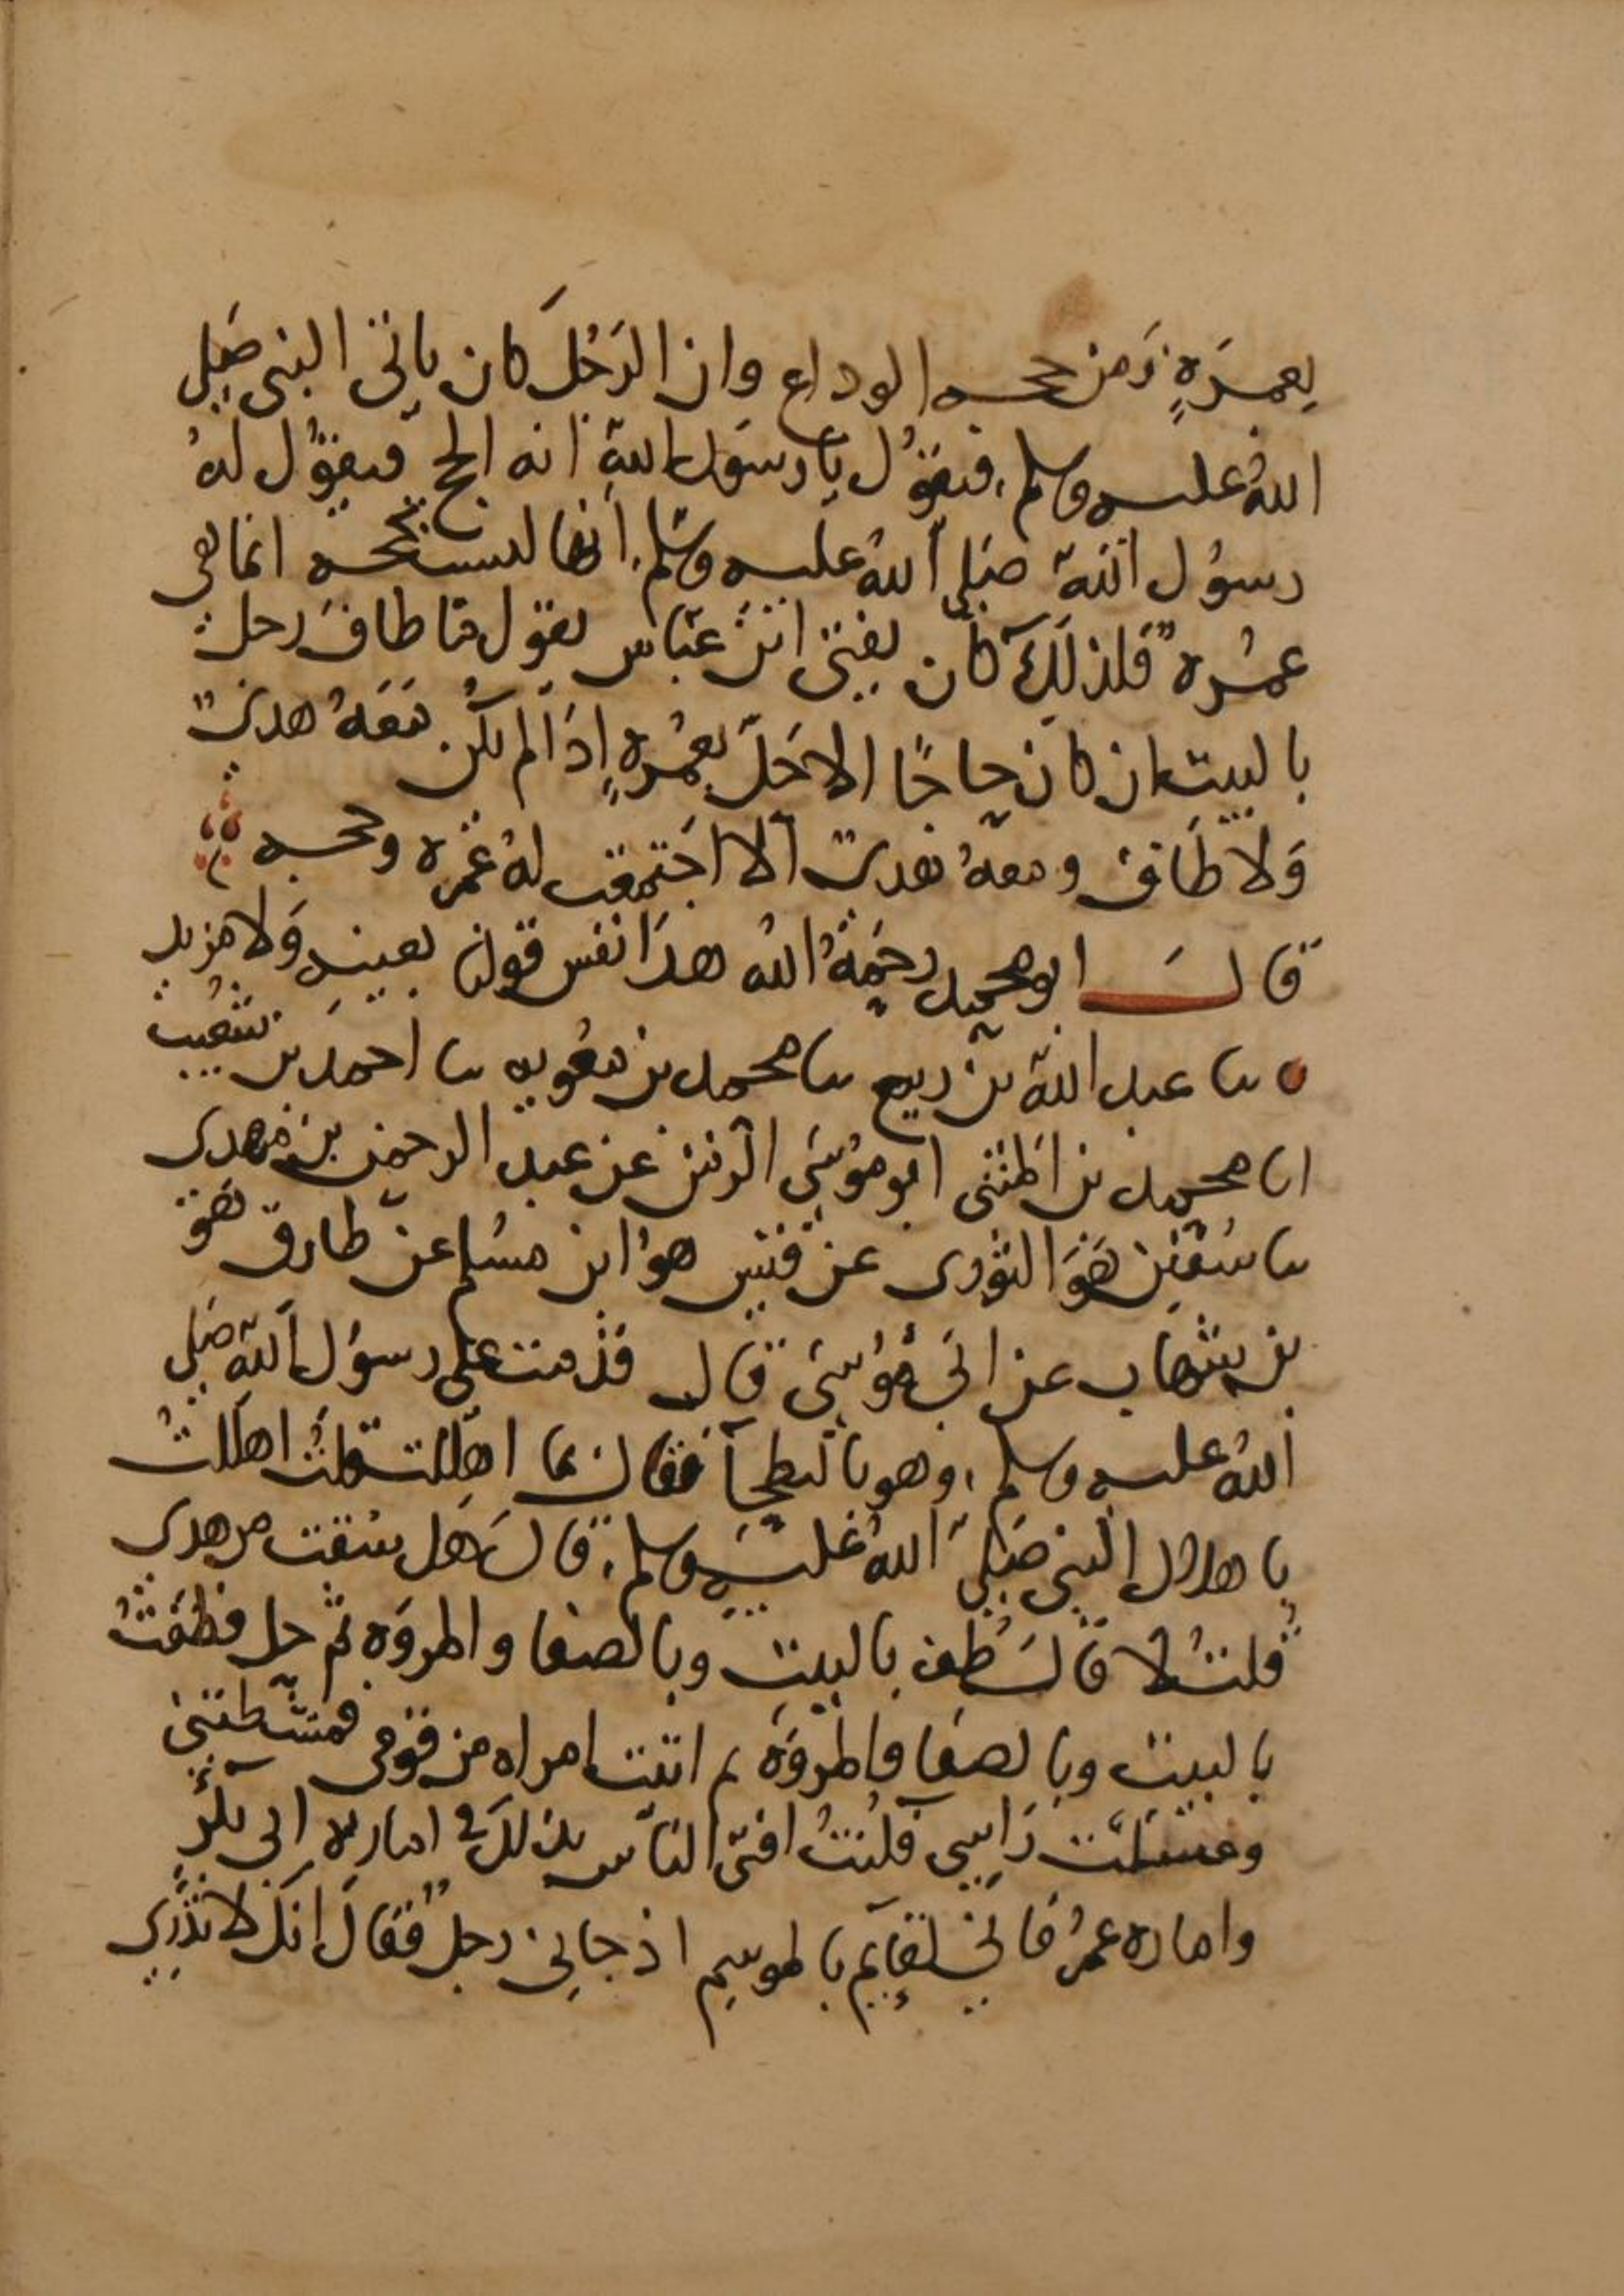 بعمرةٍ زمن حجه الوداع وان الرَجُلَ كان ياتى النبى صَلى
اللهُ عليه وسلم، فيقوُل يا رسوَل اللهِ انه الحج فيقوُل لهُ
رسوُل اللهِ صَلى اللهُ عليه وسَلم، انها ليست بحجه انما هى
عمُره فلذلِكَ كان يفتى ابن عبَاس يقول مَا طافَ رجل
بالبيت ان كان حاجًا الا حَلَّ بعُمرهٍ اِذا لم يكن مَعَهُ هدىٌ
وَلا طَاف ومعهُ هدىٌ الا اجَتمعَت لهُ عُمره وحجه
قالَ ابو محمد رحمَهُ الله هذا نفس قولنا بعينهِ وَلا مزيد
نا عبد الله بن ربيع نا محمد بن معويه نا احمد بن شعيب
انا محمد بن المثنى ابو موُسَى الزمن عن عبد الرحمن بن مهدى
نا سُفين هوَ الثورى عن قيس هوُ ابن مسُلم عن طارق هوَ
بن شهاب عن ابى موُسَى قال قدمت على رسوُل اللهِ صَلى
اللهُ عليه وسلم، وهو بالبطحا فقال بما اهللت قلتُ اهللتُ
باهلال النبى صَلى اللهُ عليهِ وسلم، قالَ هَل سُقت من هدى
قلتُ لا قالَ طُف بالبيت وبالصفا والمروَه ثم حل فطفتُ
بالبيت وبالصفا والمروَه ثم اتيت امراه من قومى فمشطتنى
وغسَلَت رَاسِى فكُنتُ افتى الناَس بذلكَ فى اماره ابى بكرٍ
واماره عمرُ فانى لقايم بالموسِم اذ جانى رجلٌ فقالَ انكَ لا تدرِى